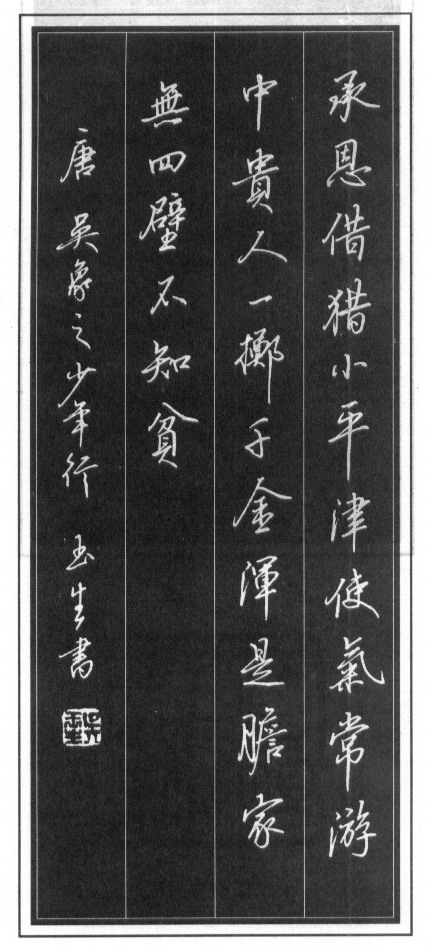 承恩借猎小平津使氣常游
中貴人一擲千金渾是膽家
無四壁不知貧
唐 吳象之少年行 玉生書